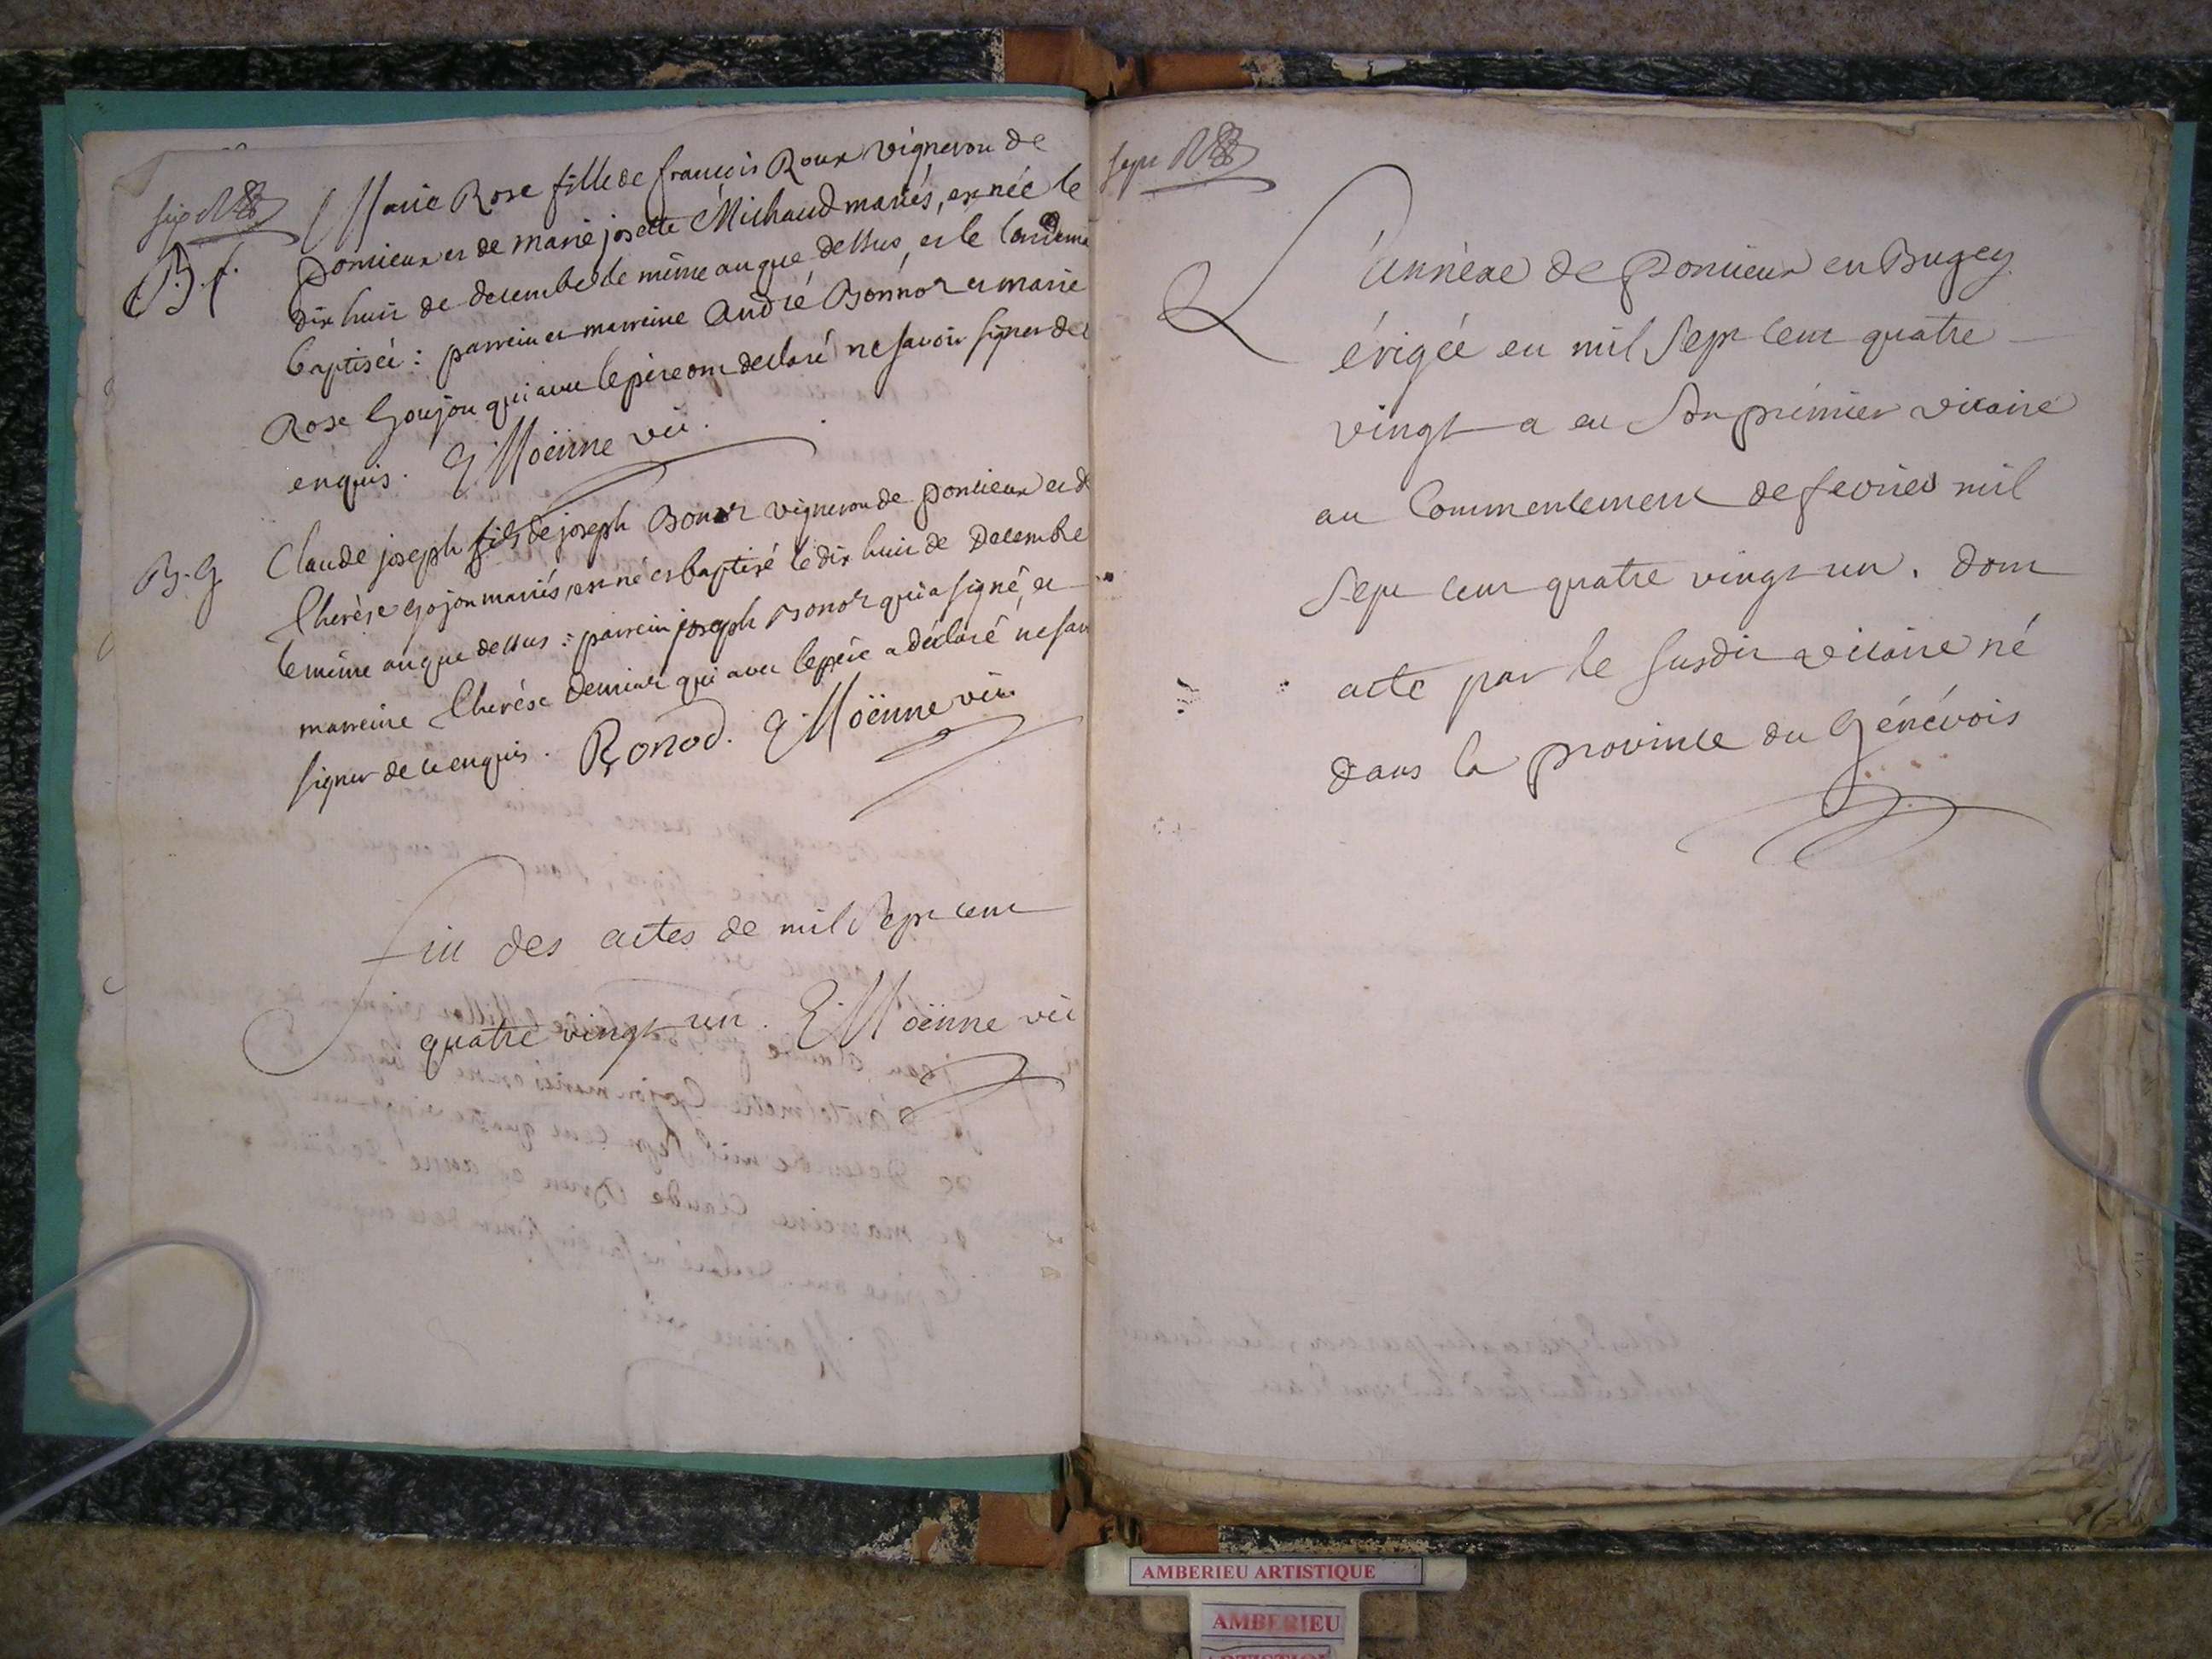 six
B. f.
Marie Rose fille de françois Roux vigneron de
Poncieux et de marie josette Michaud mariés, est née le
dix huit de decembre le même an que dessus, et le lendema
baptisée : parrein et marreine André Bonnoz et marie
Rose Goujon qui avec le père ont declaré ne savoir signer de c
enquis. Moënne vic.
B. G.
Claude joseph fils de joseph Bonoz vigneron de Poncieux et d
Therèse Gojon mariés, est né et baptisé le dix huit de Decembre
le même an que dessus : parrein joseph Bonoz qui a signé, et
marreine Therèse qui avec le père a declaré ne sav
signer de ce enquis. Bonod. Moënne vic.
fin des actes de mil sept cent
quatre vingt un. Moënne vic
sept
L'annèxe de Poncieux en Bugey
érigée en mil sept cent quatre
vingt a eu son prémier vicaire
au Commencement de fevrier mil
sept cent quatre vingt un. dont
acte par le susdit vicaire né
dans la province du Génévois
AMBERIEU ARTISTIQUE
AMBERIEU
ARTISTIQUE